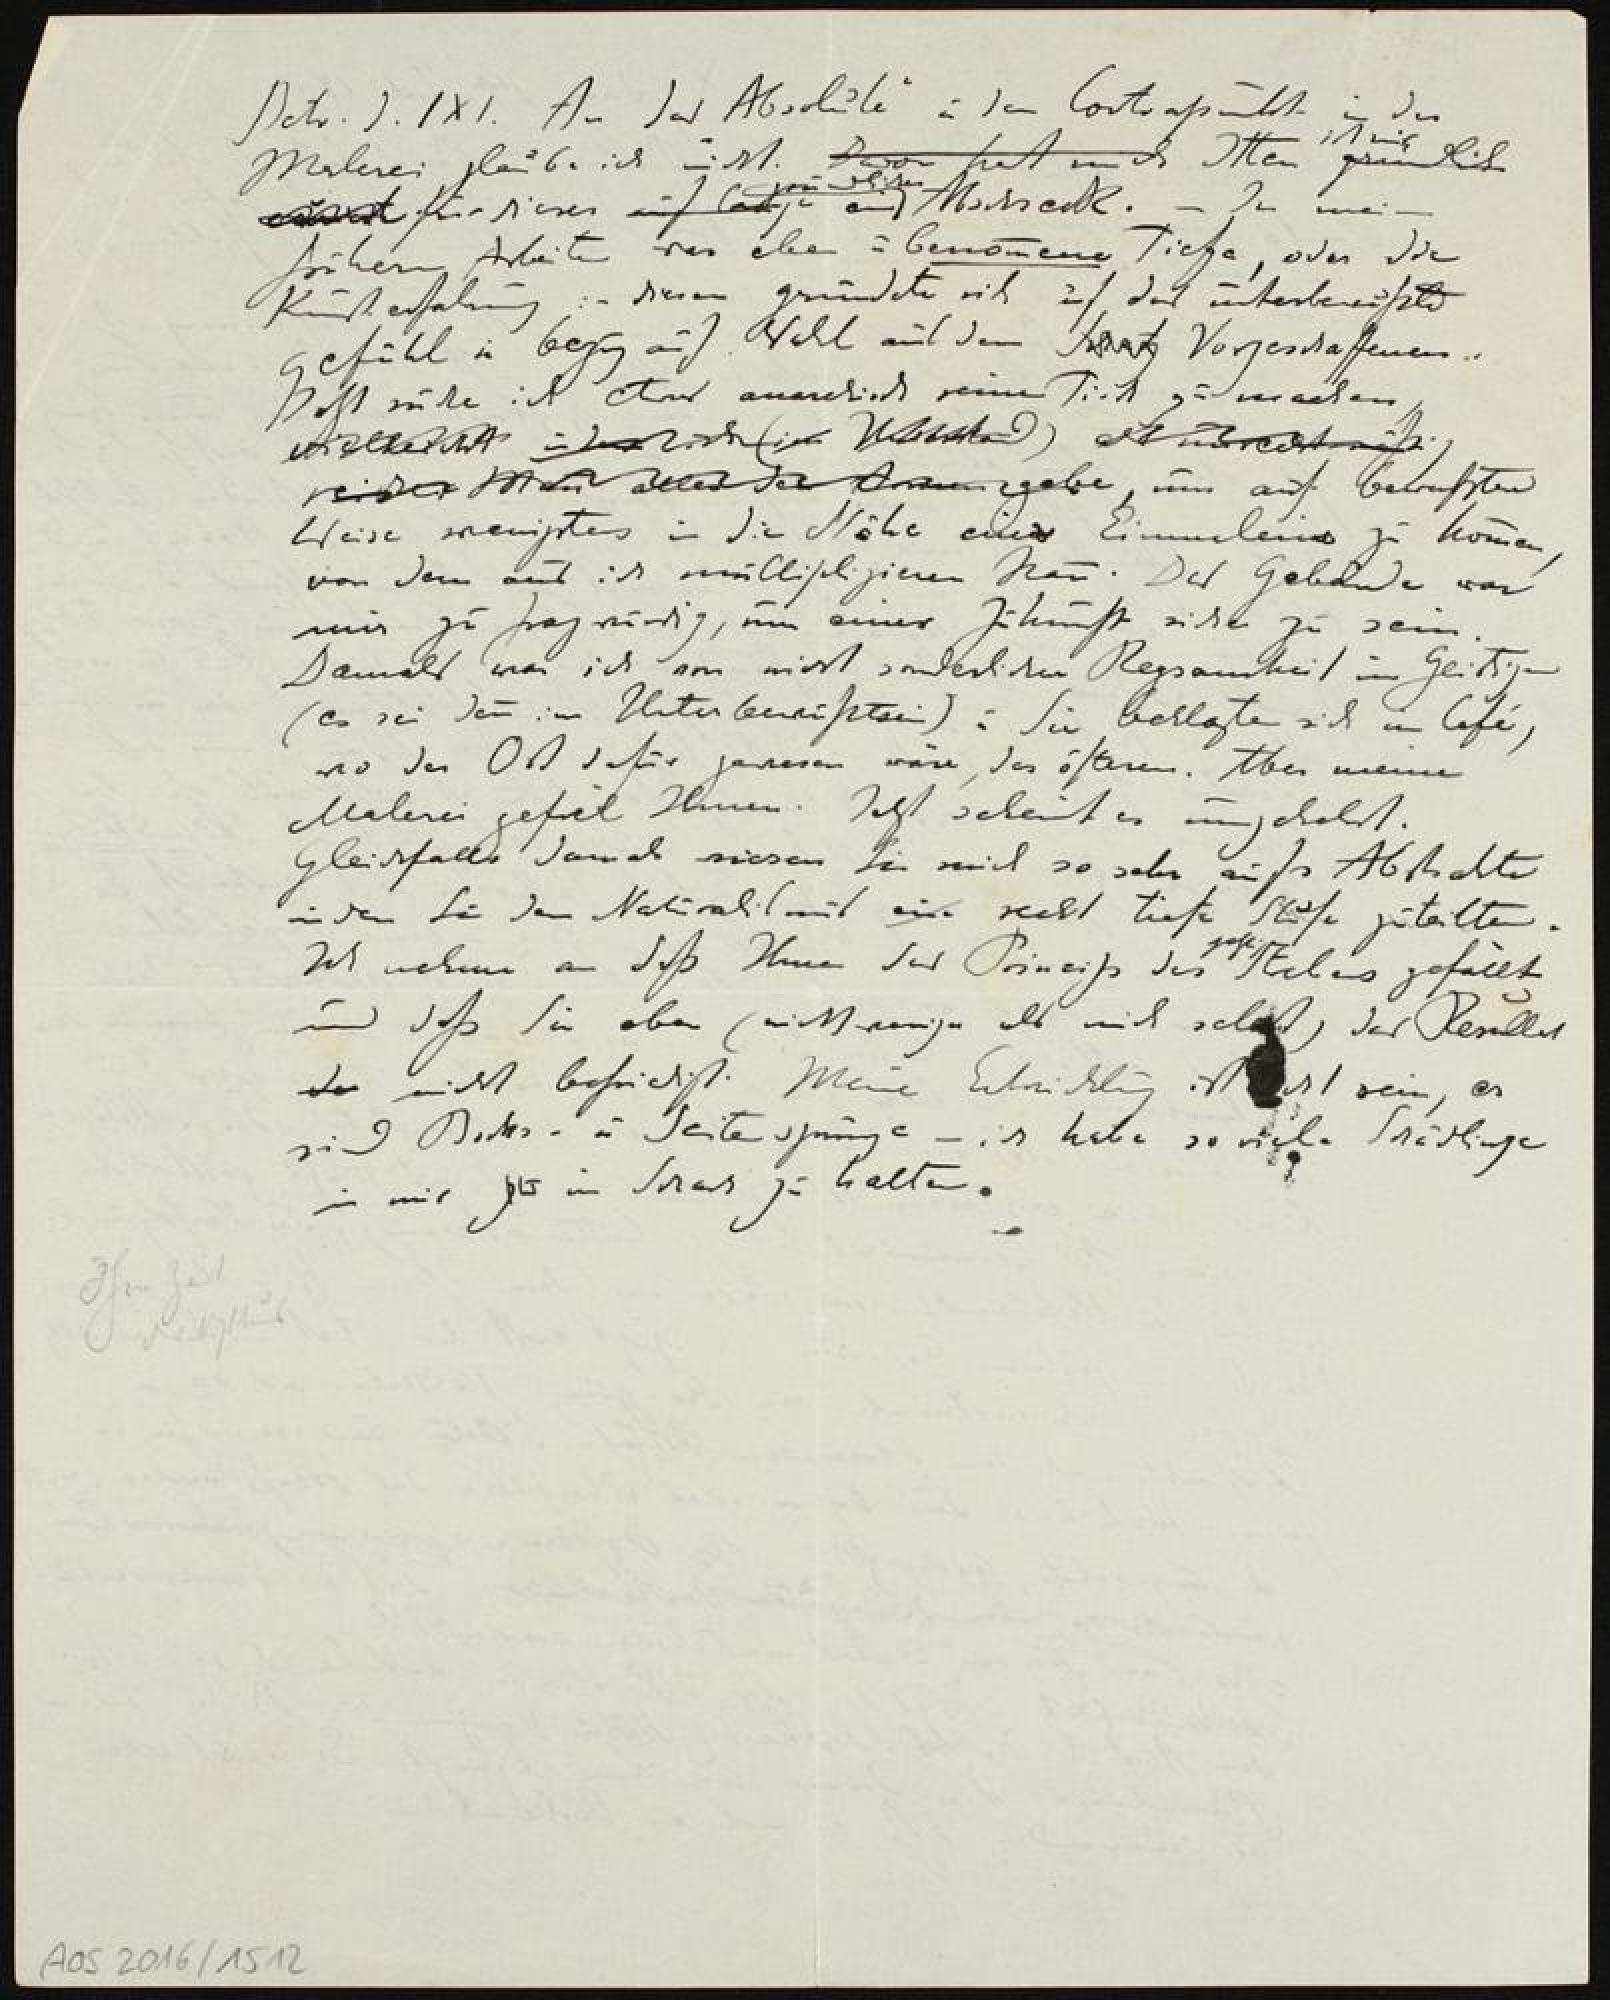 Betr. I. IXI. An das Absolute u den Contrapunkt in der
ist mir
Malerei glaube ich nicht. Davon hat mich Itten gründlich
gründliches
für dieses auf lange ein Abschreck. – In mein
frühern Arbeiten war eben übernomene Tiefe, oder die
Kunsterfahrung in diesen gründete sich auf das unterbewußte
gefühl in bezug auf Wahl aus dem Vorgeschaffenen.
Jetzt suche ich etwas anarchisch reinen Tisch zu machen,
vielleicht (im Unterstand)
gebe, um auf bewußten
Weise wenigstens in die Nähe eines Einmaleins zu komen,
von dem aus ich multiplizieren kan. Das Gebäude war
mir zu fragwürdig, um einer Zukunft sicher zu sein.
Damals war ich von nicht sonderlicher Regsamkeit im Geistigen
(es sei den im Unterbewußtsein) u Sie beklagten sich im Café,
wo der Ort dafür gewesen wäre, des öfteren. Aber meine
Malerei gefiel Ihnen. Jetzt scheint es umgekehrt.
Gleichfalls damals wiesen Sie mich so sehr aufs Abstrakte
indem Sie dem Naturalismus eine recht tiefe Stufe zuteilten.
Ich nehme an daß Ihnen das Princip des Strebens gefällt
und daß Sie eben (nicht weniger als mich selbst) das Resultat
nicht befriedigt. Meine Entwicklung ist nicht rein, es
sind Bocks- u Seitensprünge – ich habe so viele Schädlinge
in mir in Schach zu halten.
AOS 2016/1512